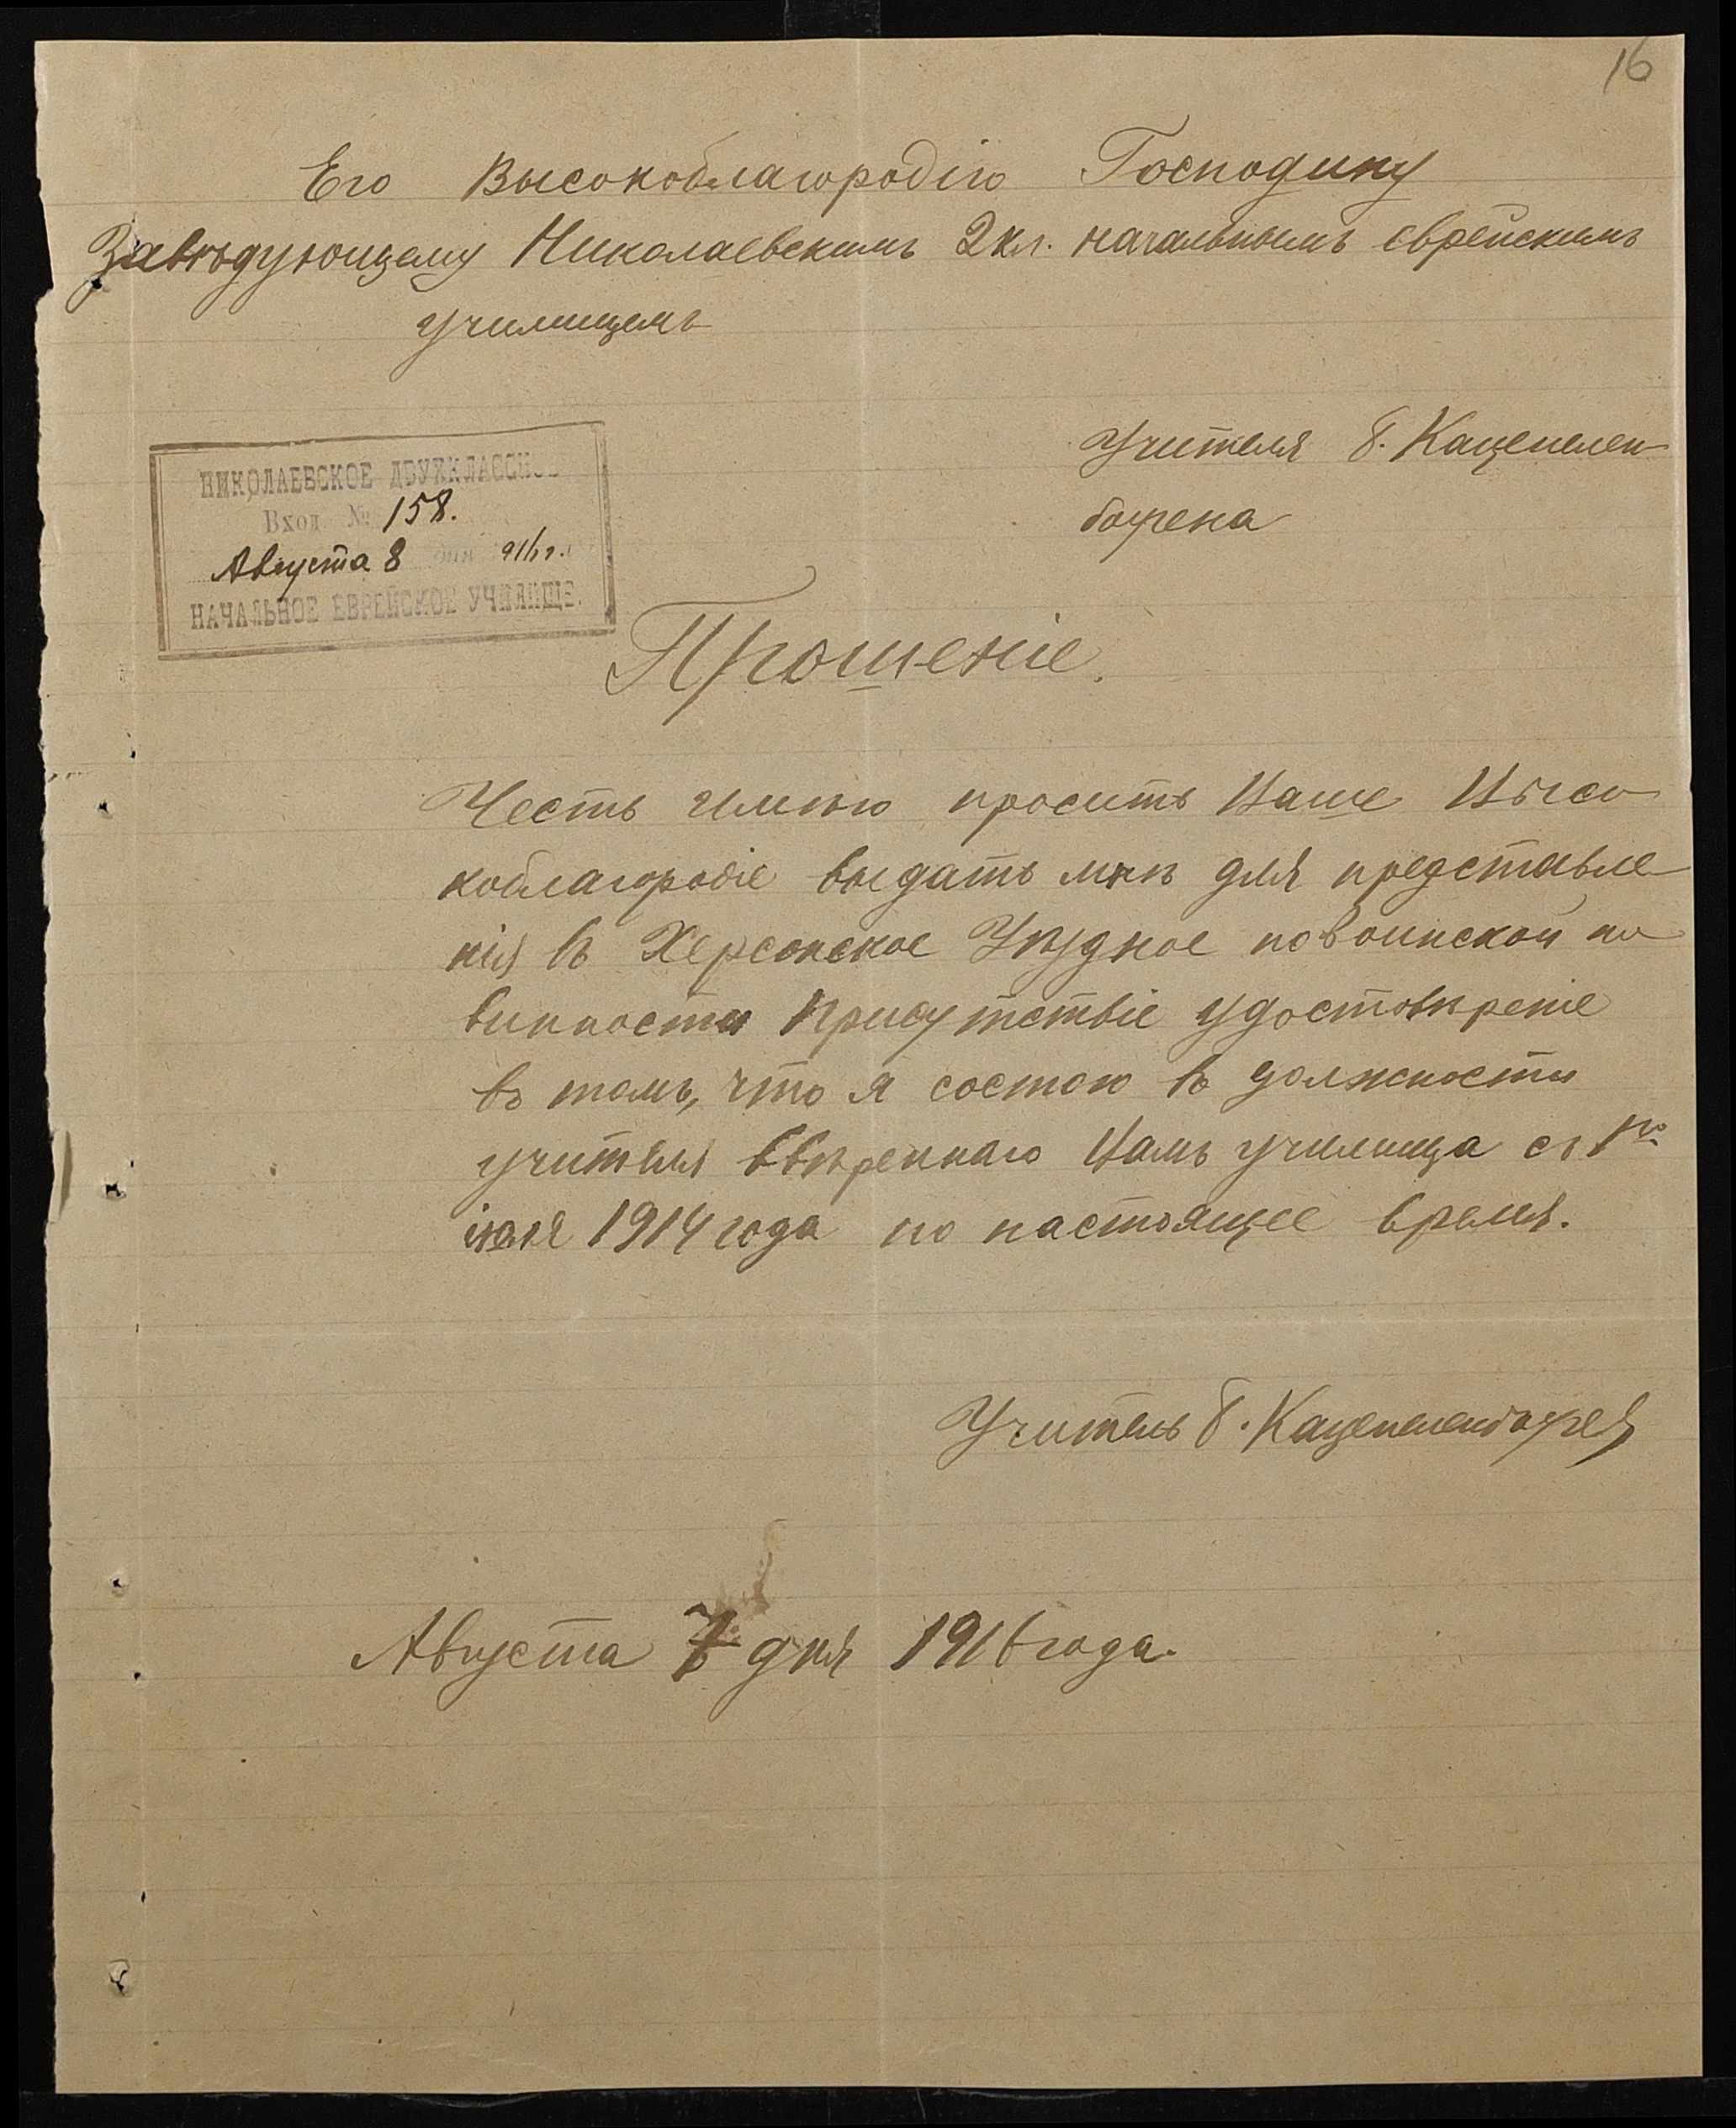 16
Его Высокоблагородію Господину
Завѣдующему Николаевскимъ 2 кл. начальнымъ еврейскимъ
училищемъ
Учителя Б. Каценелен-
богена
НИКОЛАЕВСКОЕ ДВУХКЛАССНОЕ
Вход № 158.
Августа 8 дня 1916 г.
НАЧАЛЬНОЕ ЕВРЕЙСКОЕ УЧИЛИЩЕ.
Прошеніе.
Честь имѣю просить Ваше Высо-
коблагородіе выдать мнѣ для представле-
нія въ Херсонское Уѣздное по воинской по-
винности Присутствіе удостовѣреніе
въ томъ, что я состою въ должности
учителя ввѣреннаго Вамъ училища съ 1го
іюля 1914 года по настоящее время.
Учитель Б. Каценеленбоген
Августа 7 дня 1916 года.